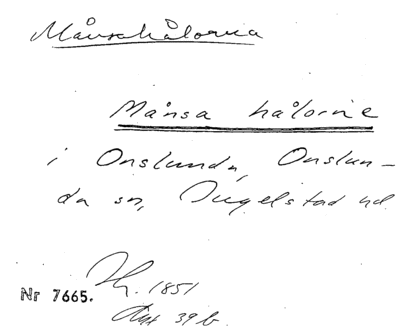 Månsahålorna
Månsa hålorne
i Onslunda, Onslun-
da sn, Ingelstad hd
Nr 7665.
1851
Akt 39 b.